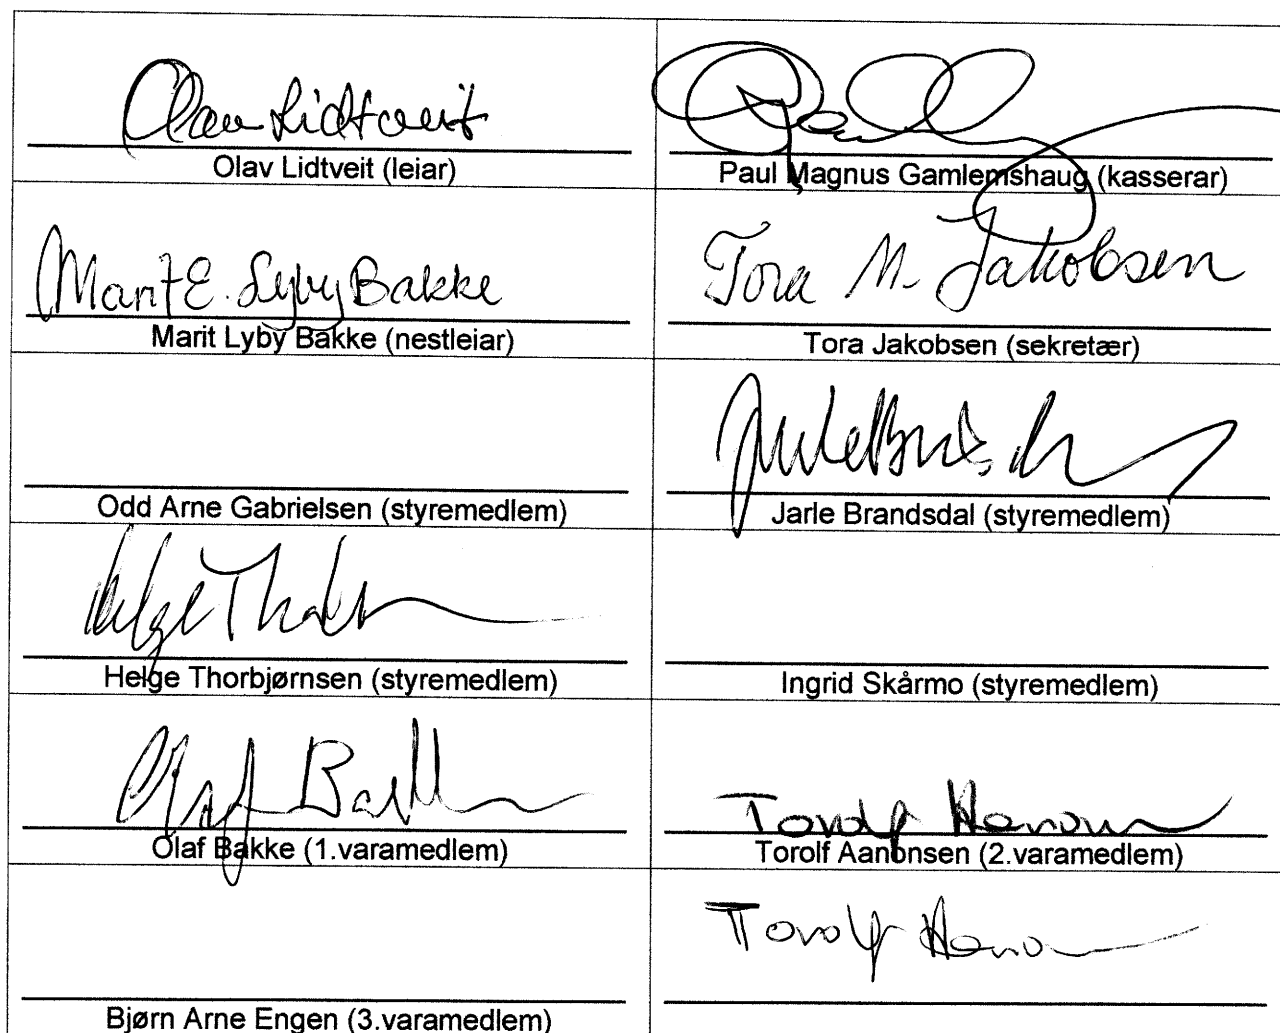 Olav Lidtveit
Olav Lidtveit (leiar)
Paul Magnus Gamlemshaug (kasserar)
Marit E. Lyby Bakke
Marit Lyby Bakke (nestleiar)
Tora M. Jakobsen
Tora Jakobsen (sekretær)
Odd Arne Gabrielsen (styremedlem)
Jarle Brandsdal (styremedlem)
Helge
Helge Thorbjørnsen (styremedlem)
Ingrid Skårmo (styremedlem)
Olaf Bakke
Olaf Bakke (1.varamedlem)
Torolf
Torolf Aanonsen (2.varamedlem)
Bjørn Arne Engen (3.varamedlem)
Torolf